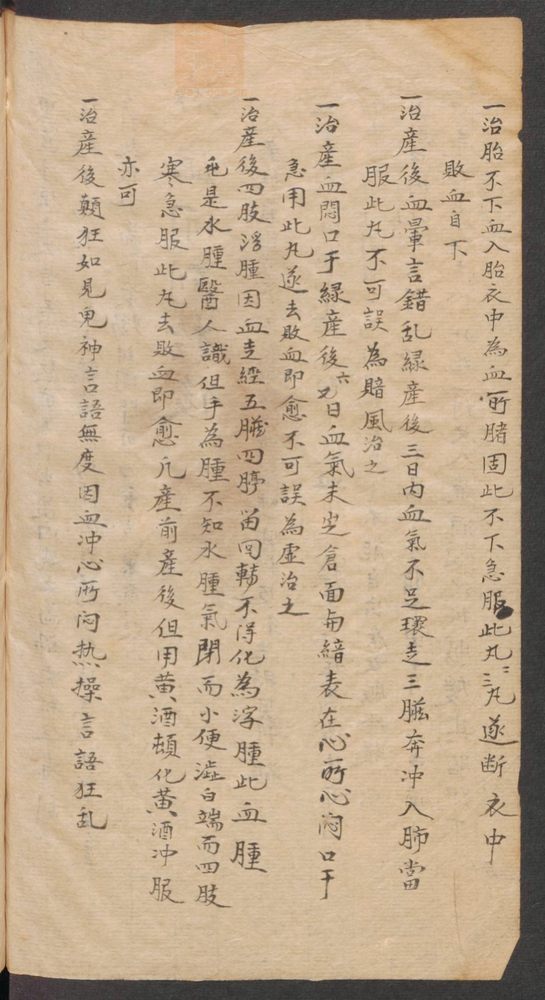 一治胎不下血入胎衣中為血所賭固此不下急服此丸二三丸遂断衣中
敗血自下
一治產後血暈言錯乱緑產後三日内血氣不足環走三臓奔冲入肺當
服此丸不可誤為賠風治之
一治產血悶口干緑產後六七日血氣未定倉面与緒表在心所心悶口干
急用此丸遂去敗血即愈不可誤為虚治之
一治產後四肢浮腫因血走經五臓四停留回轉不得化為浮腫此血腫
是水腫醫人識但乎為腫不知水腫氣閉而小便澁白端而四肢
寒急服此丸去敗血即愈凡產前產後但用黄酒頓化黄酒冲服
亦可
一治產後顛狂如見鬼神言語無度因血冲心所闷热操言語狂乱